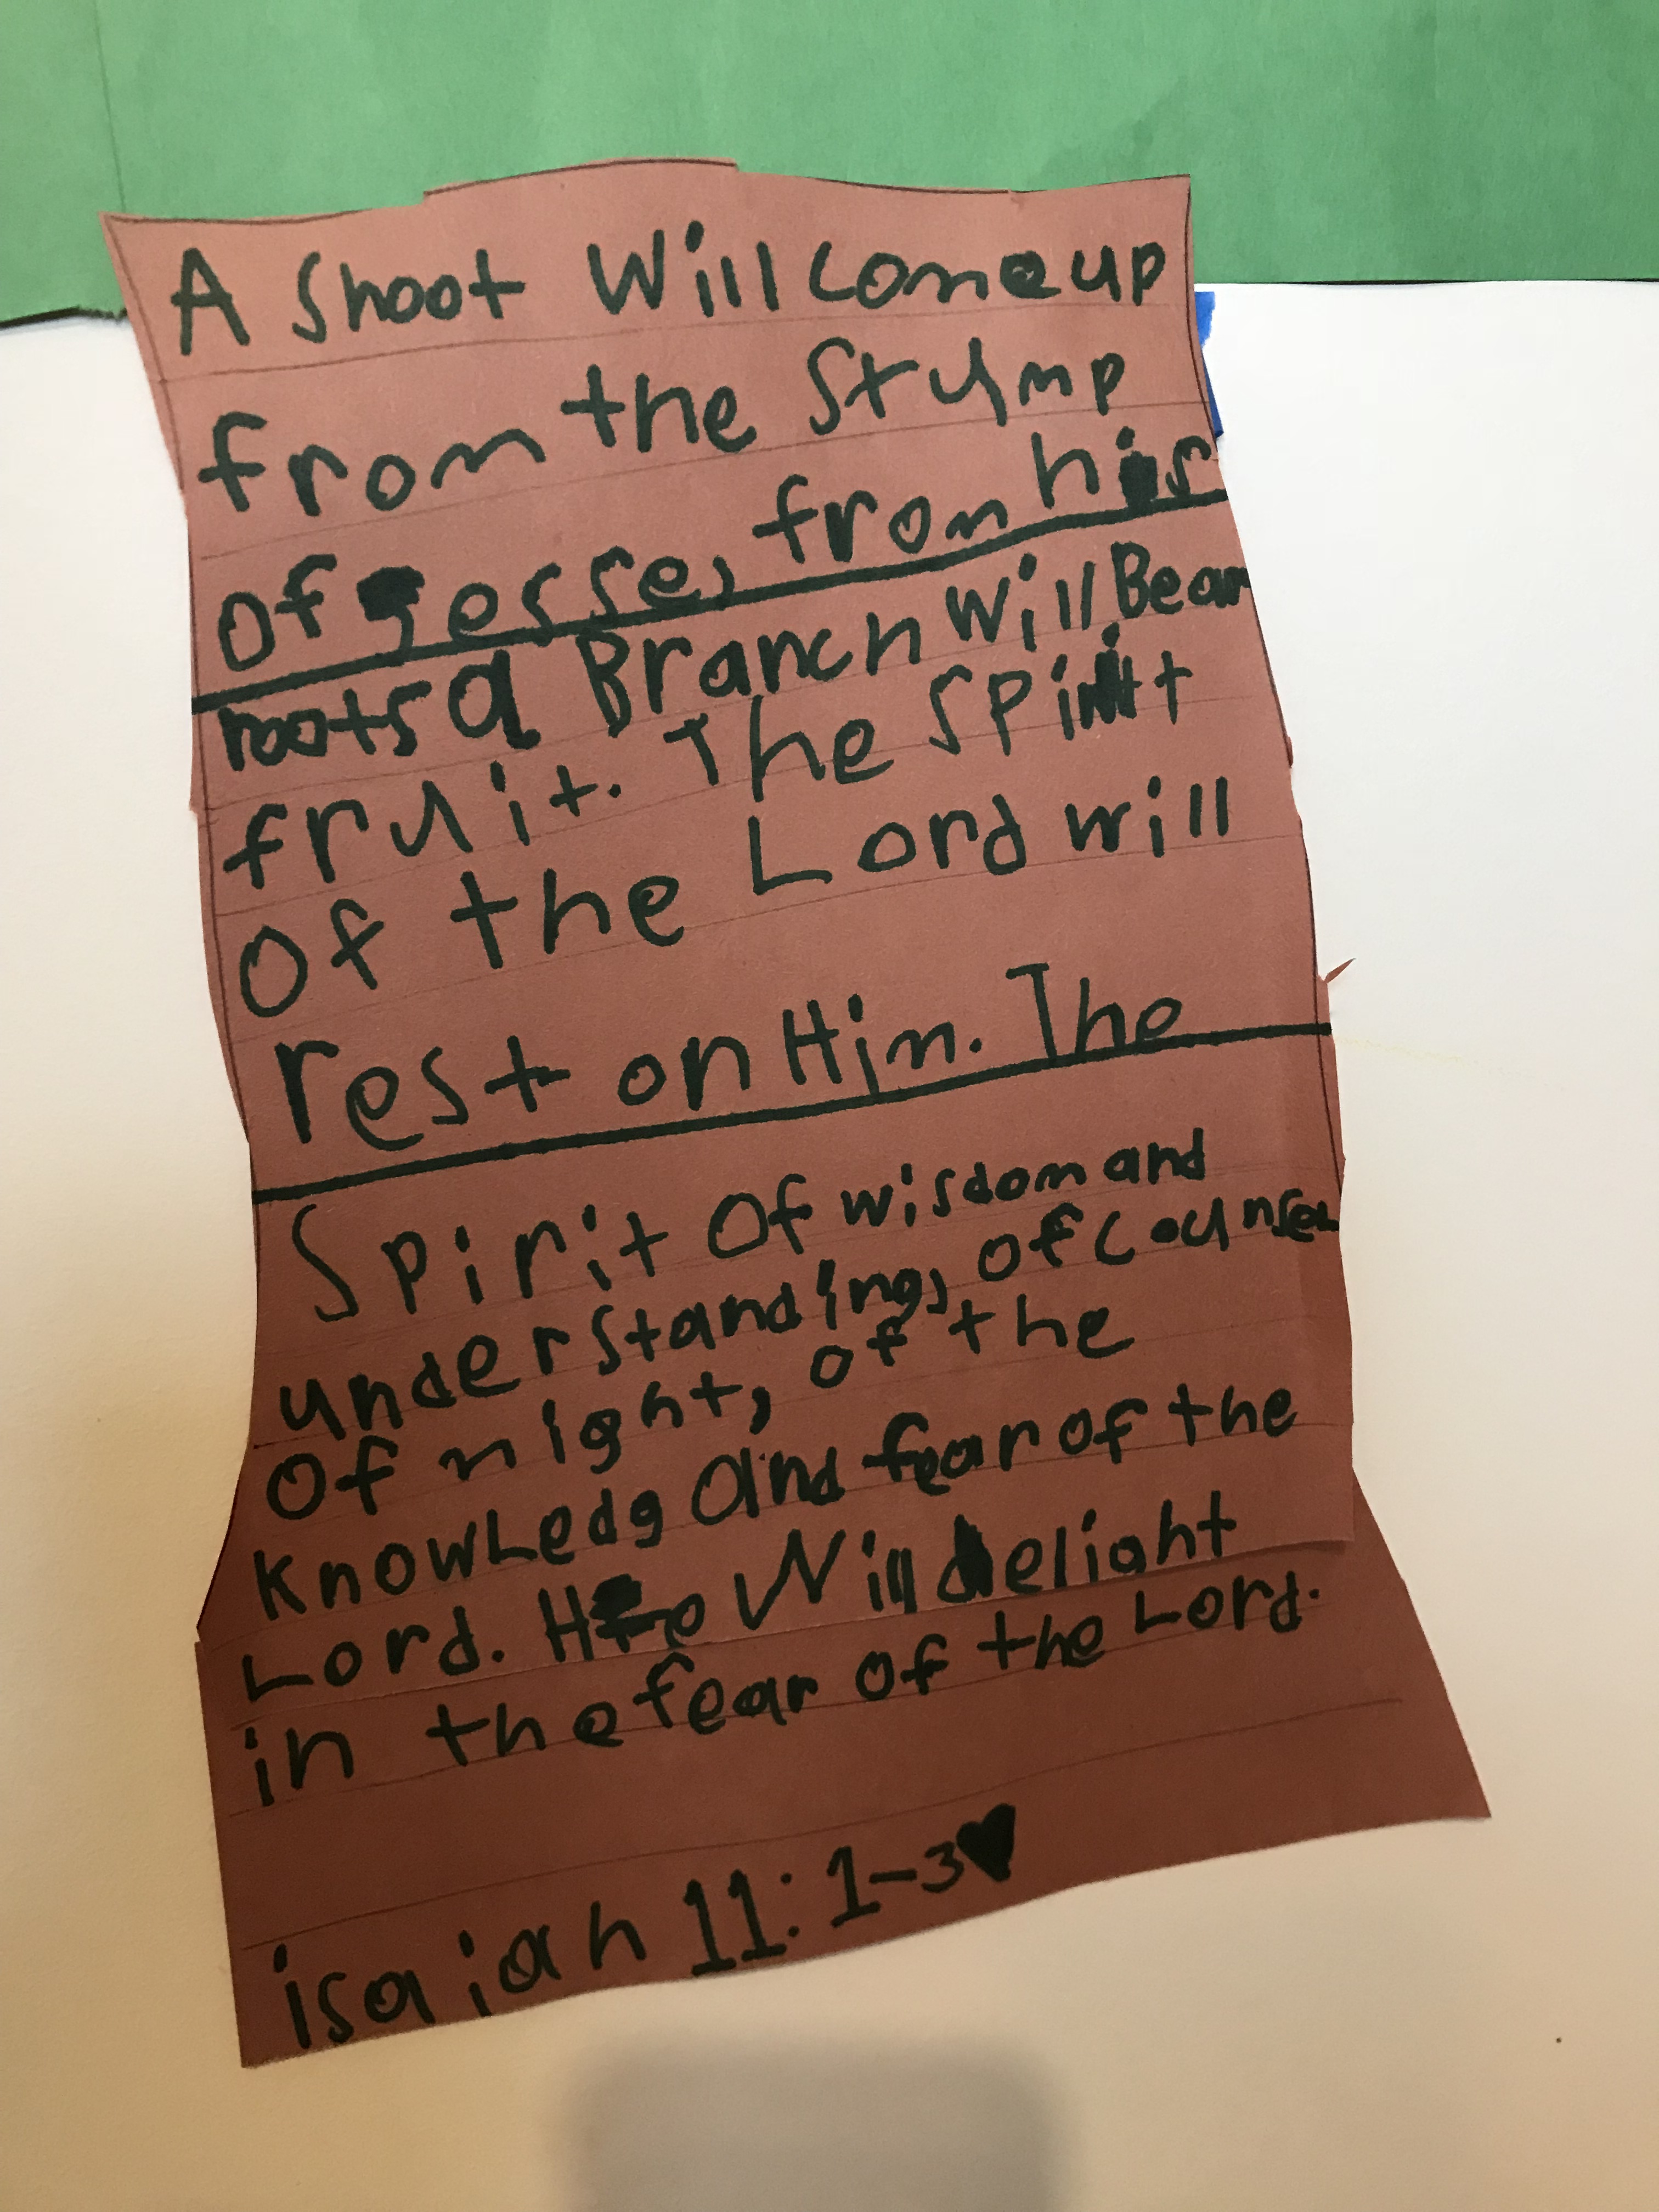 A Shoot Will come up
from the Stump
of gesse, from his
roots a Branch Will Bear
fruit. The Spirit
of the Lord will
rest on Him. The
Spirit of wisdom and
understanding, of counsel
of might, of the
knowledg and fear of the
Lord. He Will delight
in the fear of the Lord.
isaiah 11:1-3♥